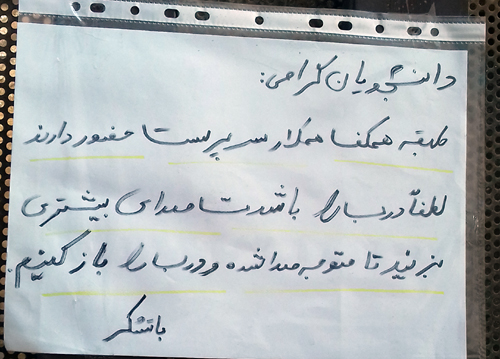 دانشجویان گرامی:
طبقه همکف همکار سرپرست حضور دارند
لطفاً درب را با شدت صدای بیشتری
بزنید تا متوجه صدا شده و درب را باز کنیم.
باتشکر